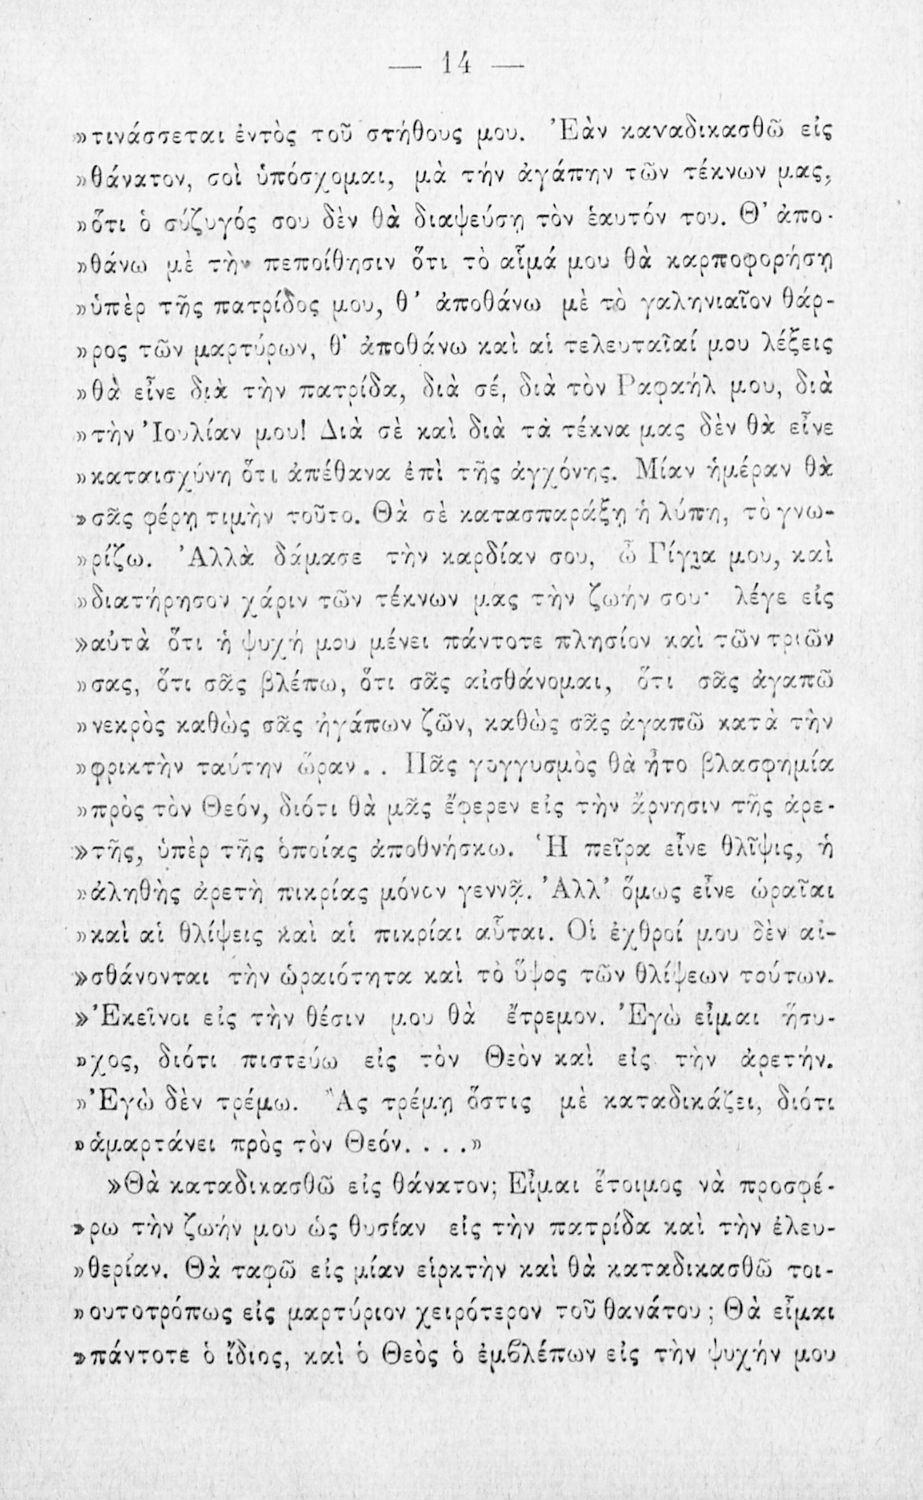 — 14 —
»τινάσσεται ἐντὸς τοῦ στήθους μου. Ἐὰν καναδικασθῶ εἰς
»θάνατον, σοὶ ὑπόσχομαι, μὰ τὴν ἀγάπην τῶν τέκνων μας,
»ὅτι ὁ σύζυγός σου δὲν θὰ διαψεύσῃ τὸν ἑαυτόν του. Θ’ ἀπο-
»θάνω μὲ τὴν πεποίθησιν ὅτι τὸ αἷμά μου θὰ καρποφορήσῃ
»ὑπὲρ τῆς πατρίδος μου, θ’ ἀποθάνω μὲ τὸ γαληνιαῖον θάρ-
»ρος τῶν μαρτύρων, θ’ ἀποθάνω καὶ αἱ τελευταῖαί μου λέξεις
»θὰ εἶνε διὰ τὴν πατρίδα, διὰ σέ, διὰ τὸν Ραφαήλ μου, διὰ
»τὴν Ἰουλίαν μου! Διὰ σὲ καὶ διὰ τὰ τέκνα μας δὲν θὰ εἶνε
»καταισχύνη ὅτι ἀπέθανα ἐπὶ τῆς ἀγχόνης. Μίαν ἡμέραν θὰ
»σᾶς φέρῃ τιμὴν τοῦτο. Θὰ σὲ κατασπαράξῃ ἡ λύπη, τὸ γνω-
»ρίζω. Ἀλλὰ δάμασε τὴν καρδίαν σου, ὦ Γίγια μου, καὶ
»διατήρησον χάριν τῶν τέκνων μας τὴν ζωήν σου· λέγε εἰς
»αὐτὰ ὅτι ἡ ψυχή μου μένει πάντοτε πλησίον καὶ τῶν τριῶν
»σας, ὅτι σᾶς βλέπω, ὅτι σᾶς αἰσθάνομαι, ὅτι σᾶς ἀγαπῶ
»νεκρὸς καθὼς σᾶς ἠγάπων ζῶν, καθὼς σᾶς ἀγαπῶ κατὰ τὴν
»φρικτὴν ταύτην ὥραν.. Πᾶς γογγυσμὸς θὰ ἦτο βλασφημία
»πρὸς τὸν Θεόν, διότι θὰ μᾶς ἔφερεν εἰς τὴν ἄρνησιν τῆς ἀρε-
»τῆς, ὑπὲρ τῆς ὁποίας ἀποθνήσκω. Ἡ πεῖρα εἶνε θλῖψις, ἡ
»ἀληθὴς ἀρετὴ πικρίας μόνον γεννᾷ. Ἀλλ’ ὅμως εἶνε ὡραῖαι
»καὶ αἱ θλίψεις καὶ αἱ πικρίαι αὗται. Οἱ ἐχθροί μου δὲν αἰ-
»σθάνονται τὴν ὡραιότητα καὶ τὸ ὕψος τῶν θλίψεων τούτων.
»Ἐκεῖνοι εἰς τὴν θέσιν μου θὰ ἔτρεμον. Ἐγὼ εἶμαι ἥσυ-
»χος, διότι πιστεύω εἰς τὸν Θεὸν καὶ εἰς τὴν ἀρετήν.
»Ἐγὼ δὲν τρέμω. Ἂς τρέμῃ ὅστις μὲ καταδικάζει, διότι
»ἁμαρτάνει πρὸς τὸν Θεόν....»
»Θὰ καταδικασθῶ εἰς θάνατον; Εἶμαι ἕτοιμος νὰ προσφέ-
»ρω τὴν ζωήν μου ὡς θυσίαν εἰς τὴν πατρίδα καὶ τὴν ἐλευ-
»θερίαν. Θὰ ταφῶ εἰς μίαν εἱρκτὴν καὶ θὰ καταδικασθῶ τοι-
»ουτοτρόπως εἰς μαρτύριον χειρότερον τοῦ θανάτου; Θὰ εἶμαι
»πάντοτε ὁ ἴδιος, καὶ ὁ Θεὸς ὁ ἐμβλέπων εἰς τὴν ψυχήν μου